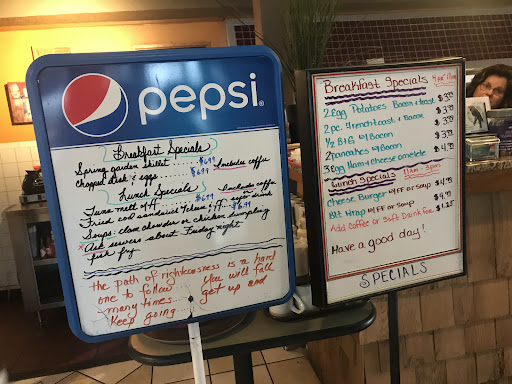 pepsi
Breakfast Specials
Spring garden skillet $6.99 Includes coffee
Chopped steak & eggs $6.99
Lunch Specials
Tuna melt Includes coffee
Fried cod sandwich $6.99 or soft drink
Soups: clam chowder or chicken dumpling
Ask servers about Friday night
fish fry
the path of righteousness is a hard
one to follow You will fall
many times get up and
Keep going
Breakfast Specials
2 egg Potatoes Bacon & toast
2 pc. French toast & Bacon
1/2 B+G w/Bacon
2 pancakes w/Bacon
3 egg Ham & cheese omelete
Lunch specials 11am - 3pm
Cheese Burger w/FF or Soup $4.99
Blt Wrap w/FF or Soup $4.99
Add Coffee or Soft Drink For $1.25
Have a good day!
SPECIALS